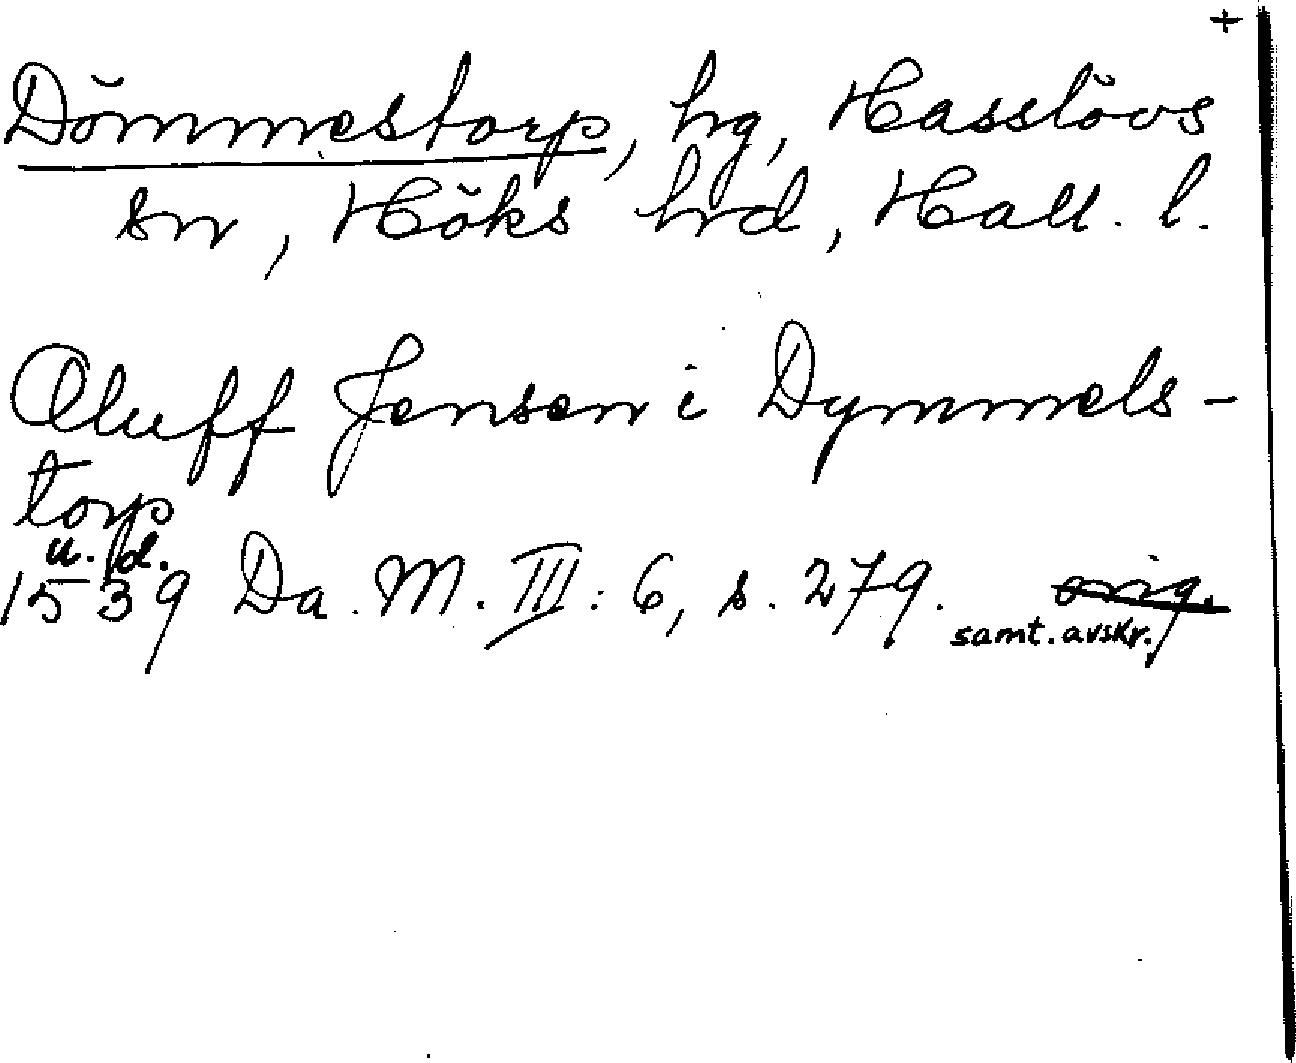 +
Dömmestorp, hg, Hasslövs
sn, Höks hrd, Hall. l.
Oluff Jensen i Dymmels-
torp
u. d.
1539 Da. M. III: 6, s. 279. orig.
samt. avskr.